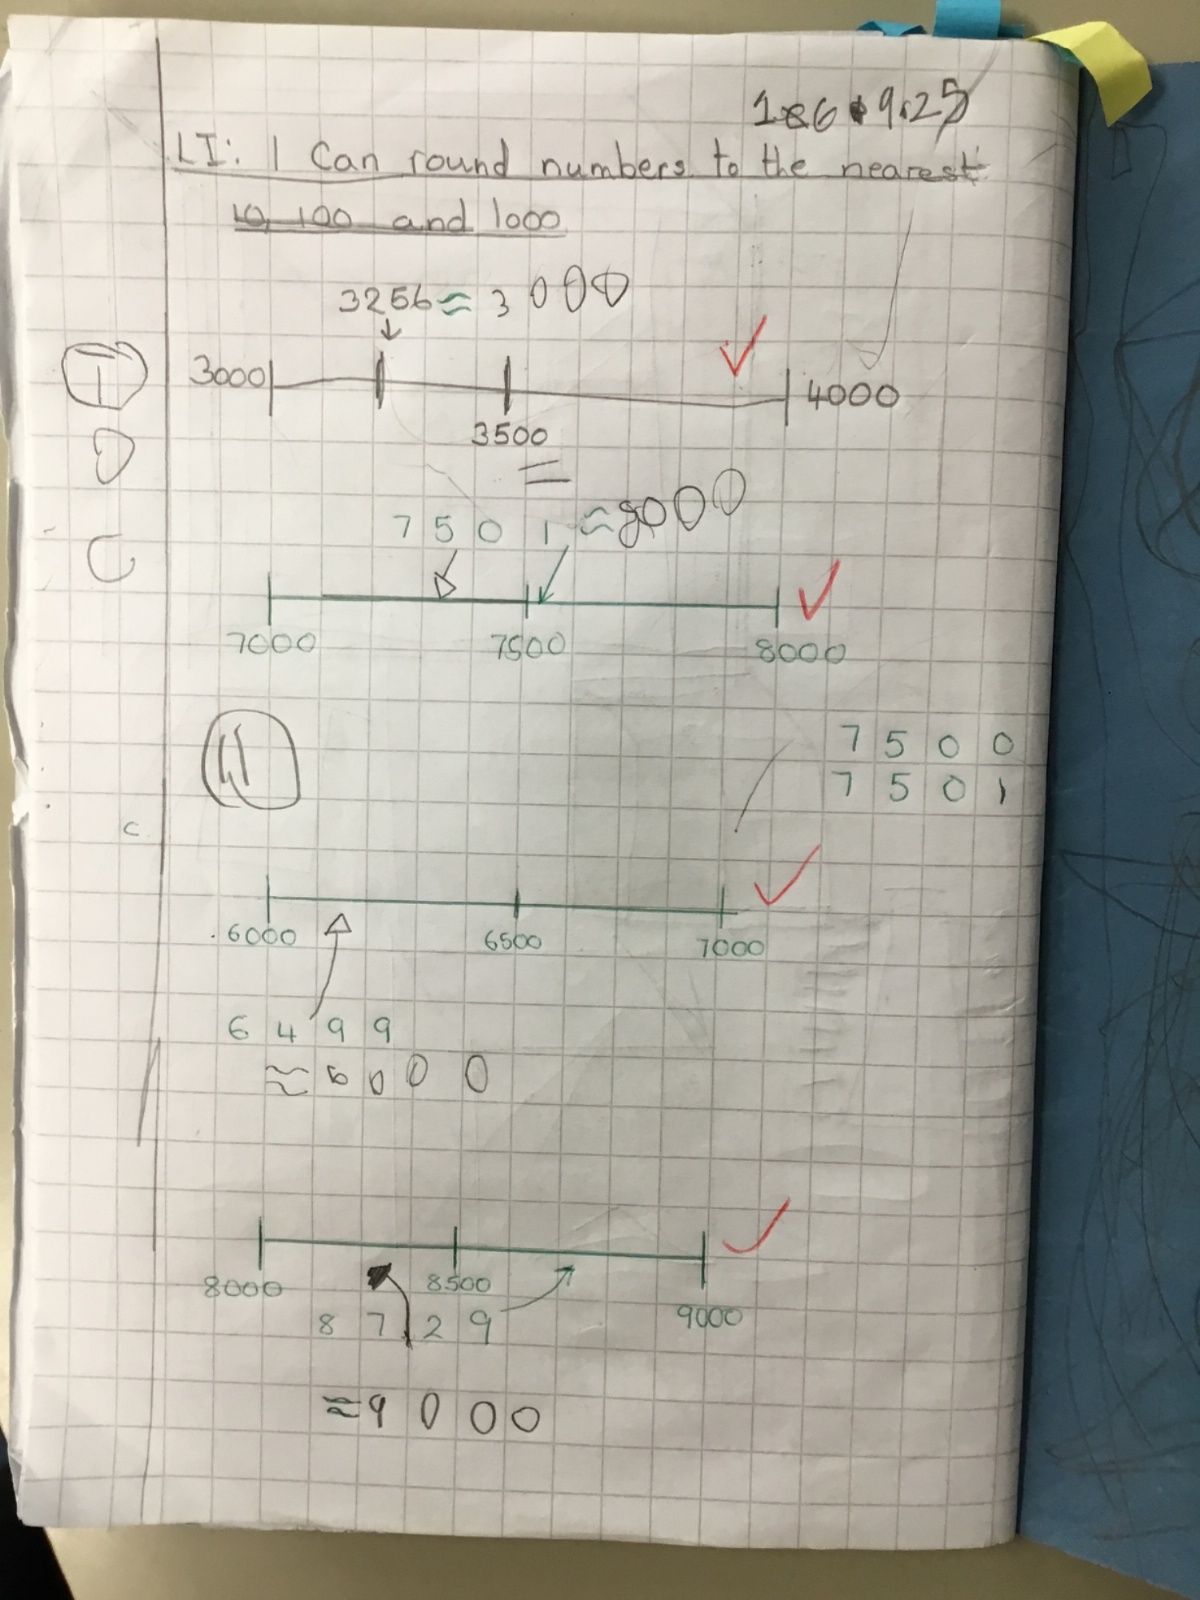 LI: I can round numbers to the nearest
10, 100 and 1000
3256 ≈ 3000
3000
4000
3500
7501 ≈ 8000
7000 7500 8000
7500
7501
C
6000 6500 7000
6499
≈ 6000
8000 8500 9000
8729
≈ 9000